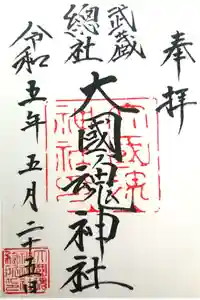 奉拝
武蔵
總社
大國魂神社
令和五年五月二十五日